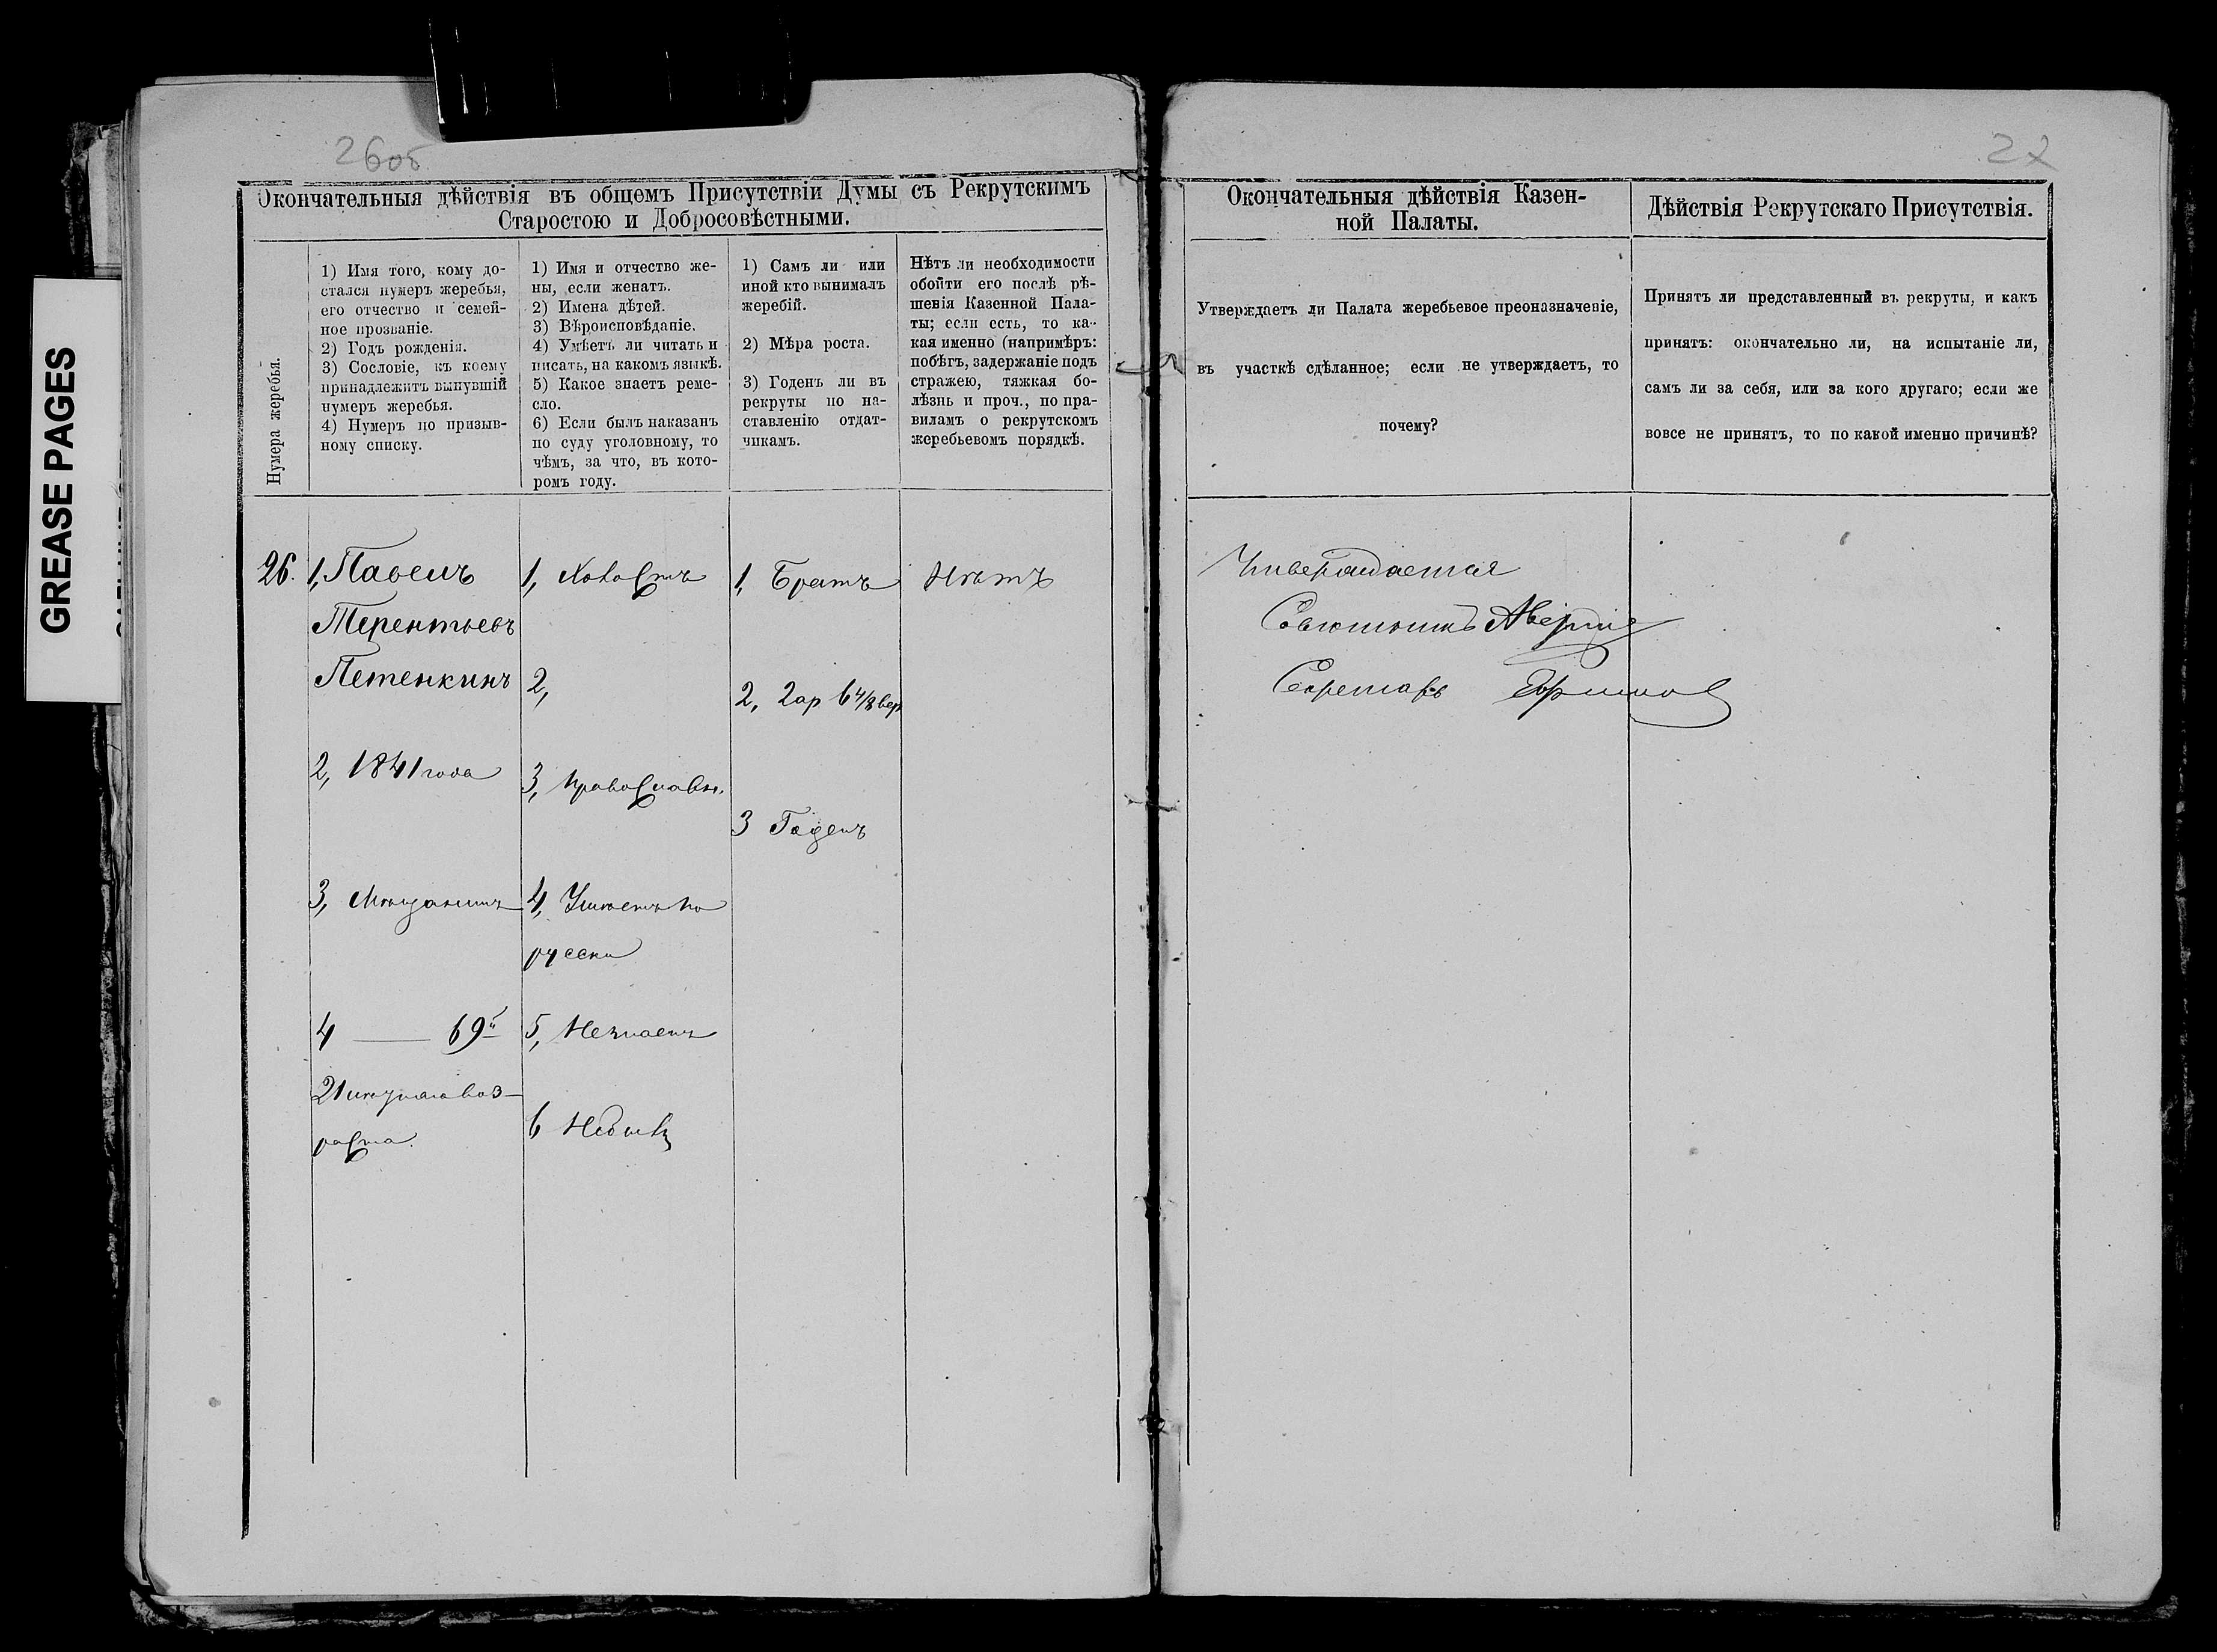 GREASE PAGES
26об
Окончательныя дѣйствія въ общемъ Присутствіи Думы съ Рекрутскимъ
Старостою и Добросовѣстными.
Нумера жеребья.
1) Имя того, кому до-
стался нумеръ жеребья,
его отчество и семей-
ное прозваніе.
2) Годъ рожденія.
3) Сословіе, къ коему
принадлежитъ вынувшій
нумеръ жеребья.
4) Нумеръ по призыв-
ному списку.
1) Имя и отчество же-
ны, если женатъ.
2) Имена дѣтей.
3) Вѣроисповѣданіе.
4) Умѣетъ ли читать и
писать, на какомъ языкѣ.
5) Какое знаетъ реме-
сло.
6) Если былъ наказанъ
по суду уголовному, то
чѣмъ, за что, въ кото-
ромъ году.
1) Самъ ли или
иной кто вынималъ
жеребій.
2) Мѣра роста.
3) Годенъ ли въ
рекруты по на-
ставленію отдат-
чикамъ.
Нѣтъ ли необходимости
обойти его послѣ рѣ-
шенія Казенной Пала-
ты; если есть, то ка-
кая именно (напримѣръ:
побѣгъ, задержаніе подъ
стражею, тяжкая бо-
лѣзнь и проч., по пра-
виламъ о рекрутскомъ
жеребьевомъ порядкѣ.
26.
1, Павелъ
Терентьевъ
Петенкинъ
2, 1841 года
3, Мѣщанинъ
4 — 69й
21 лѣтняго воз-
раста.
1, Холостъ
2,
3, Православн.
4, Умѣетъ по
русски
5, Незнаетъ
6 Небылъ
1, Братъ
2, 2 ар 6 4/8 вер
3 Годенъ
Нѣтъ
27
Окончательныя дѣйствія Казен-
ной Палаты.
Утверждаетъ ли Палата жеребьевое преоназначеніе,
въ участкѣ сдѣланное; если не утверждаетъ, то
почему?
Утверждается
Совѣтникъ
Секретарь
Дѣйствія Рекрутскаго Присутствія.
Принятъ ли представленный въ рекруты, и какъ
принятъ: окончательно ли, на испытаніе ли,
самъ ли за себя, или за кого другаго; если же
вовсе не принятъ, то по какой именно причинѣ?